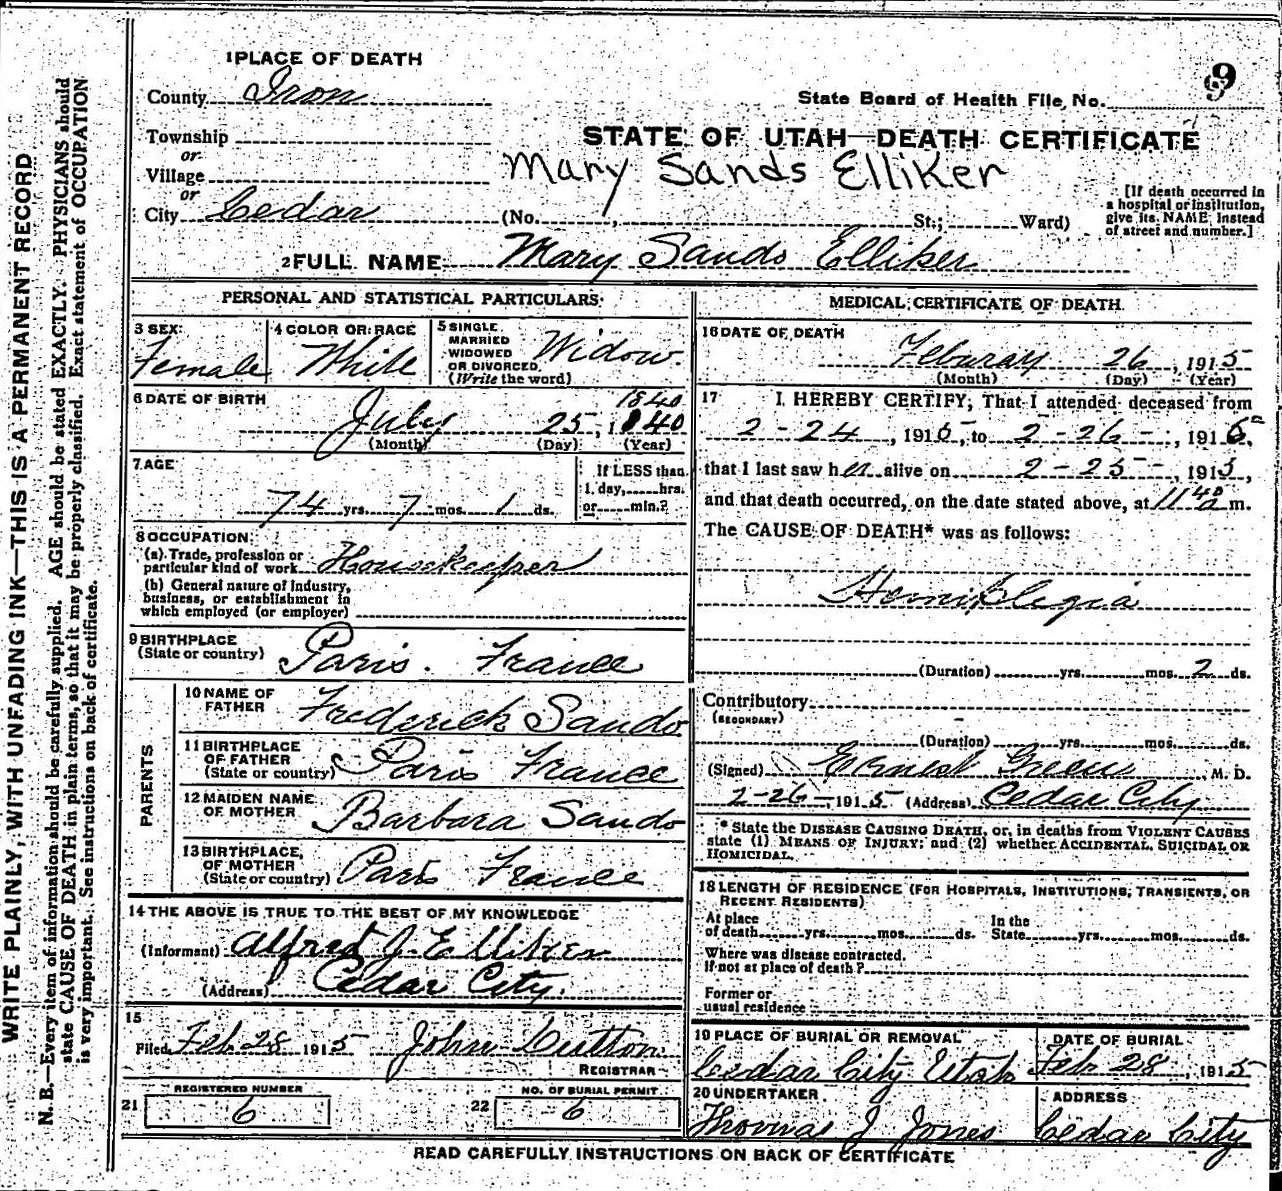 9
1 PLACE OF DEATH
County Iron
State Board of Health File No.
Township
or
Village
or
City Cedar
STATE OF UTAH—DEATH CERTIFICATE
Mary Sands Elliker
(No. , St.; Ward)
[If death occurred in
a hospital or institution,
give its NAME instead
of street and number.]
2 FULL NAME Mary Sands Elliker
PERSONAL AND STATISTICAL PARTICULARS
3 SEX
Female
4 COLOR OR RACE
White
5 SINGLE
MARRIED
WIDOWED
OR DIVORCED
(Write the word)
Widow
6 DATE OF BIRTH
1840
July 25, 1840
(Month) (Day) (Year)
7 AGE
74 yrs. 7 mos. 1 ds.
If LESS than
1 day, hrs.
or min.?
8 OCCUPATION
(a) Trade, profession or
particular kind of work Housekeeper
(b) General nature of industry,
business, or establishment in
which employed (or employer)
9 BIRTHPLACE
(State or country) Paris. France
PARENTS
10 NAME OF
FATHER Frederick Sands
11 BIRTHPLACE
OF FATHER
(State or country) Paris France
12 MAIDEN NAME
OF MOTHER Barbara Sands
13 BIRTHPLACE
OF MOTHER
(State or country) Paris France
14 THE ABOVE IS TRUE TO THE BEST OF MY KNOWLEDGE
(Informant) Alfred J. Elliker
(Address) Cedar City.
15
Filed Feb 28 1915 John
REGISTRAR
REGISTERED NUMBER
21 6
NO. OF BURIAL PERMIT
22 6
MEDICAL CERTIFICATE OF DEATH
16 DATE OF DEATH
Feburay 26, 1915
(Month) (Day) (Year)
17 I HEREBY CERTIFY, That I attended deceased from
2-24, 1915, to 2-26-, 1915,
that I last saw her alive on 2-25-, 1915,
and that death occurred, on the date stated above, at 11 40 a m.
The CAUSE OF DEATH* was as follows:
Hemiplegia
(Duration) yrs. mos. 2 ds.
Contributory
(SECONDARY)
(Duration) yrs. mos. ds.
(Signed) Ernest Green M. D.
2-26-, 1915 (Address) Cedar City
* State the DISEASE CAUSING DEATH, or, in deaths from VIOLENT CAUSES
state (1) MEANS OF INJURY; and (2) whether ACCIDENTAL, SUICIDAL OR
HOMICIDAL.
18 LENGTH OF RESIDENCE (FOR HOSPITALS, INSTITUTIONS, TRANSIENTS, OR
RECENT RESIDENTS)
At place
of death yrs. mos. ds.
In the
State yrs. mos. ds.
Where was disease contracted,
if not at place of death?
Former or
usual residence
19 PLACE OF BURIAL OR REMOVAL
Cedar City Utah
DATE OF BURIAL
Feb 28, 1915
20 UNDERTAKER
Thomas J Jones
ADDRESS
Cedar City
READ CAREFULLY INSTRUCTIONS ON BACK OF CERTIFICATE
WRITE PLAINLY, WITH UNFADING INK—THIS IS A PERMANENT RECORD
N. B.—Every item of information should be carefully supplied. AGE should be stated EXACTLY. PHYSICIANS should
state CAUSE OF DEATH in plain terms, so that it may be properly classified. Exact statement of OCCUPATION
is very important. See instructions on back of certificate.